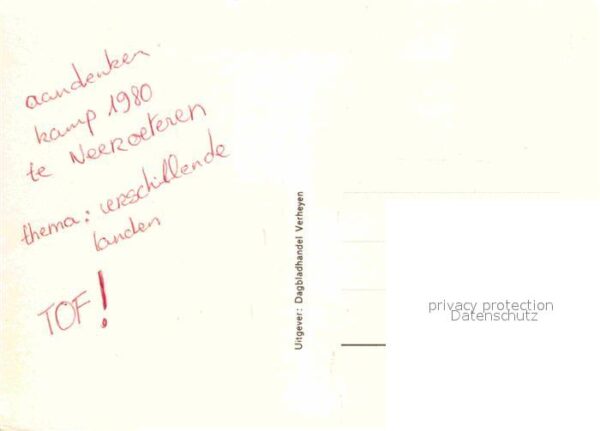 aandenken
kamp 1980
te Neeroeteren
thema: verschillende
landen
TOF!
Uitgever: Dagbladhandel Verheyen
privacy protection
Datenschutz